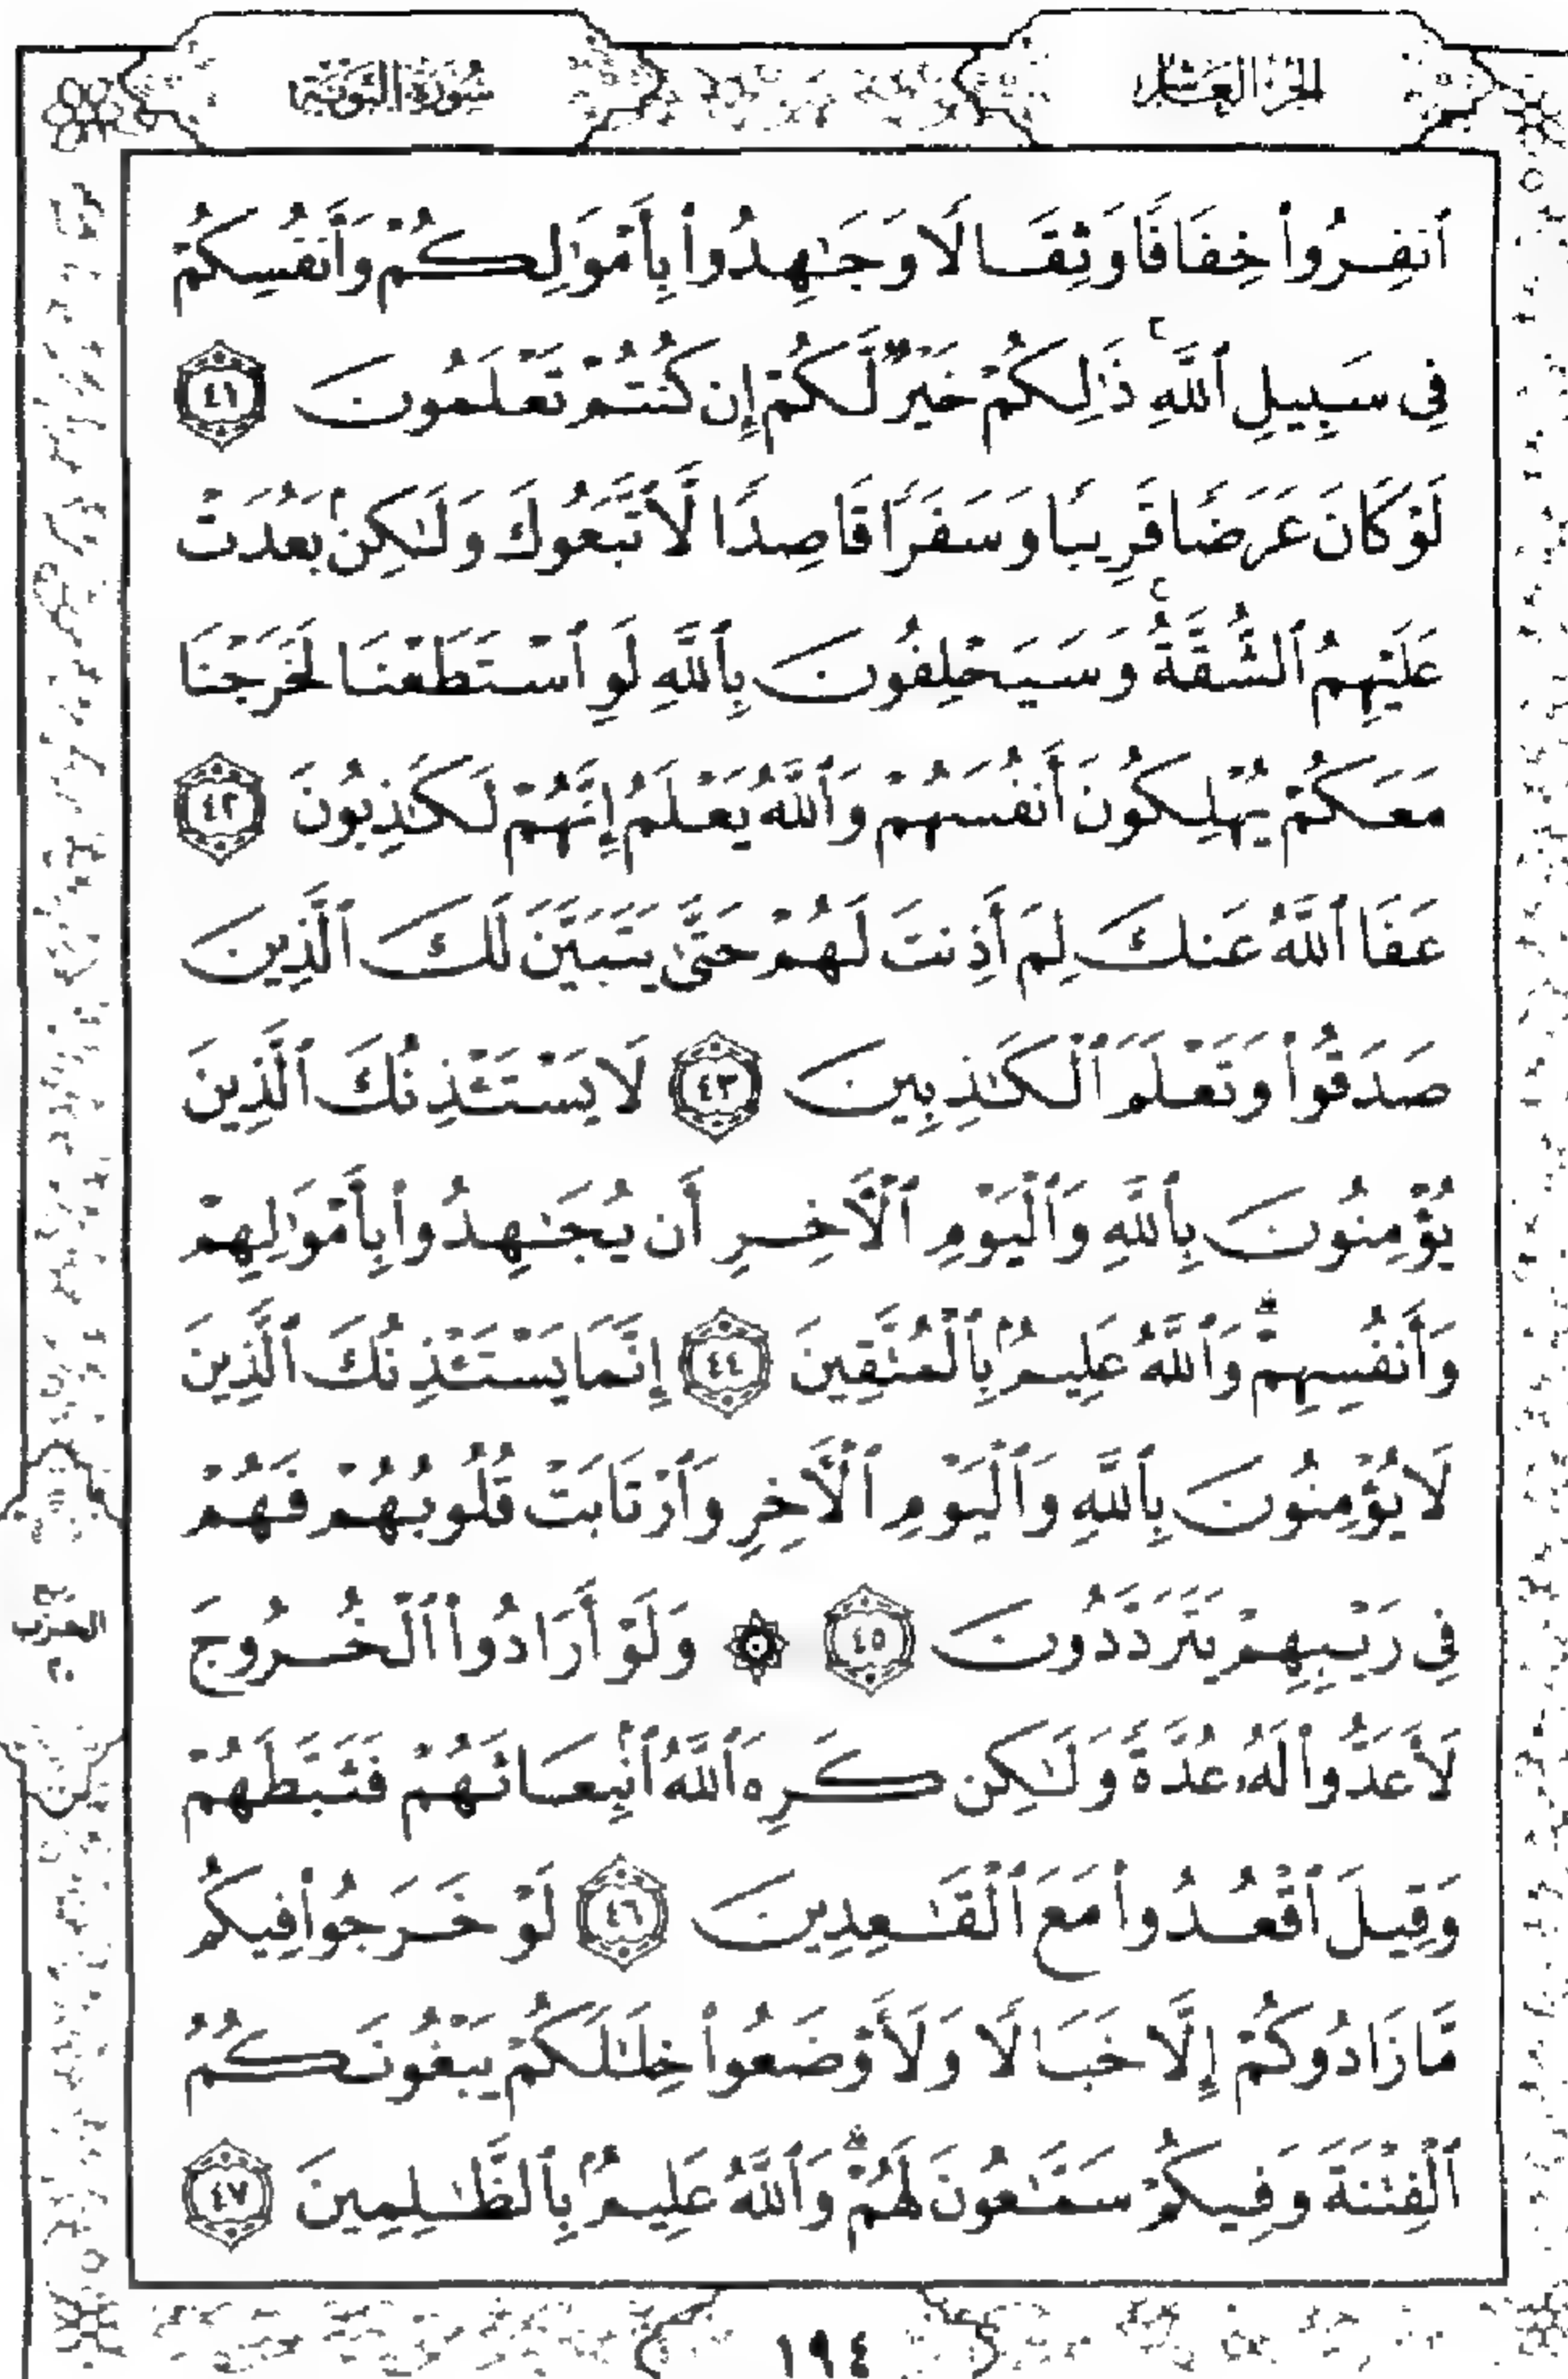 الجزء العاشر
سورة التوبة
ٱنفِرُوا۟ خِفَافًا وَثِقَالًا وَجَٰهِدُوا۟ بِأَمْوَٰلِكُمْ وَأَنفُسِكُمْ
فِى سَبِيلِ ٱللَّهِ ۚ ذَٰلِكُمْ خَيْرٌ لَّكُمْ إِن كُنتُمْ تَعْلَمُونَ ٤١
لَوْ كَانَ عَرَضًا قَرِيبًا وَسَفَرًا قَاصِدًا لَّٱتَّبَعُوكَ وَلَٰكِنۢ بَعُدَتْ
عَلَيْهِمُ ٱلشُّقَّةُ ۚ وَسَيَحْلِفُونَ بِٱللَّهِ لَوِ ٱسْتَطَعْنَا لَخَرَجْنَا
مَعَكُمْ يُهْلِكُونَ أَنفُسَهُمْ وَٱللَّهُ يَعْلَمُ إِنَّهُمْ لَكَٰذِبُونَ ٤٢
عَفَا ٱللَّهُ عَنكَ لِمَ أَذِنتَ لَهُمْ حَتَّىٰ يَتَبَيَّنَ لَكَ ٱلَّذِينَ
صَدَقُوا۟ وَتَعْلَمَ ٱلْكَٰذِبِينَ ٤٣ لَا يَسْتَـْٔذِنُكَ ٱلَّذِينَ
يُؤْمِنُونَ بِٱللَّهِ وَٱلْيَوْمِ ٱلْءَاخِرِ أَن يُجَٰهِدُوا۟ بِأَمْوَٰلِهِمْ
وَأَنفُسِهِمْ ۗ وَٱللَّهُ عَلِيمٌۢ بِٱلْمُتَّقِينَ ٤٤ إِنَّمَا يَسْتَـْٔذِنُكَ ٱلَّذِينَ
لَا يُؤْمِنُونَ بِٱللَّهِ وَٱلْيَوْمِ ٱلْءَاخِرِ وَٱرْتَابَتْ قُلُوبُهُمْ فَهُمْ
فِى رَيْبِهِمْ يَتَرَدَّدُونَ ٤٥ ۞ وَلَوْ أَرَادُوا۟ ٱلْخُرُوجَ
لَأَعَدُّوا۟ لَهُۥ عُدَّةً وَلَٰكِن كَرِهَ ٱللَّهُ ٱنۢبِعَاثَهُمْ فَثَبَّطَهُمْ
وَقِيلَ ٱقْعُدُوا۟ مَعَ ٱلْقَٰعِدِينَ ٤٦ لَوْ خَرَجُوا۟ فِيكُم
مَّا زَادُوكُمْ إِلَّا خَبَالًا وَلَأَوْضَعُوا۟ خِلَٰلَكُمْ يَبْغُونَكُمُ
ٱلْفِتْنَةَ وَفِيكُمْ سَمَّٰعُونَ لَهُمْ ۗ وَٱللَّهُ عَلِيمٌۢ بِٱلظَّٰلِمِينَ ٤٧
الحزب
٢٠
١٩٤